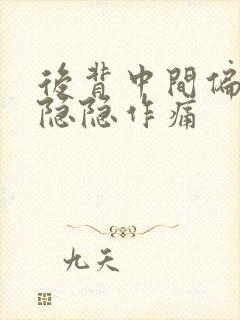 後背中間偏
隐隐作痛
九天